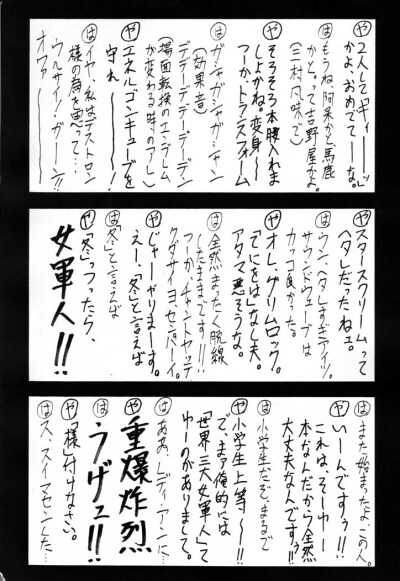 や 2人してギィーーッッ
かよ、おめでてーな。
は もうね、阿呆かと、馬鹿
かと。って吉野屋かよ。
(三村風味で)
や そろそろ本腰入れま
しょかね。変身〜
つーか、トランスフォーム
ガシャガシャガシャン
(効果音)
デデデーデデデーデン
(場面転換のエンブレム
が変わる時のアレ)
や エネルゴンキューブを
守れーーー!
は イヤ、私はデストロン
様の為を思って…
ウルサイ!ガーン!!
オワァーーーー
や スタースクリームって
ヘタレだったねェ。
は ウン、ヘタレすぎ、アイツ。
サウンドウェーブは
カッコ良かった。
や オレ、グリムロック。
「てにをは」なし夫。
アタマ悪そうな。
は 全然まったく脱線
したままです!!
つーか、チャントヤッテ
クダサイヨセンパーイ。
や じゃーやりまーす。
えー、「冬」と言えば
は 「冬」と言えば
や 「冬」っつったら、
女軍人!!
は また始まったよ、この人。
や いーんですぅ!!
これは、そーゆー
本なんだから全然
大丈夫なんですぅ!!
は 小学生だぞ、まるで
や 小学生上等〜!!
で、まァ俺的には
「世界三大女軍人」て
ゆーのがありまして。
は ああ、レディ・アンに…
や 重爆炸烈
は うげュ!!
や 「様」付けなさい。
は ス、スイマセンした…